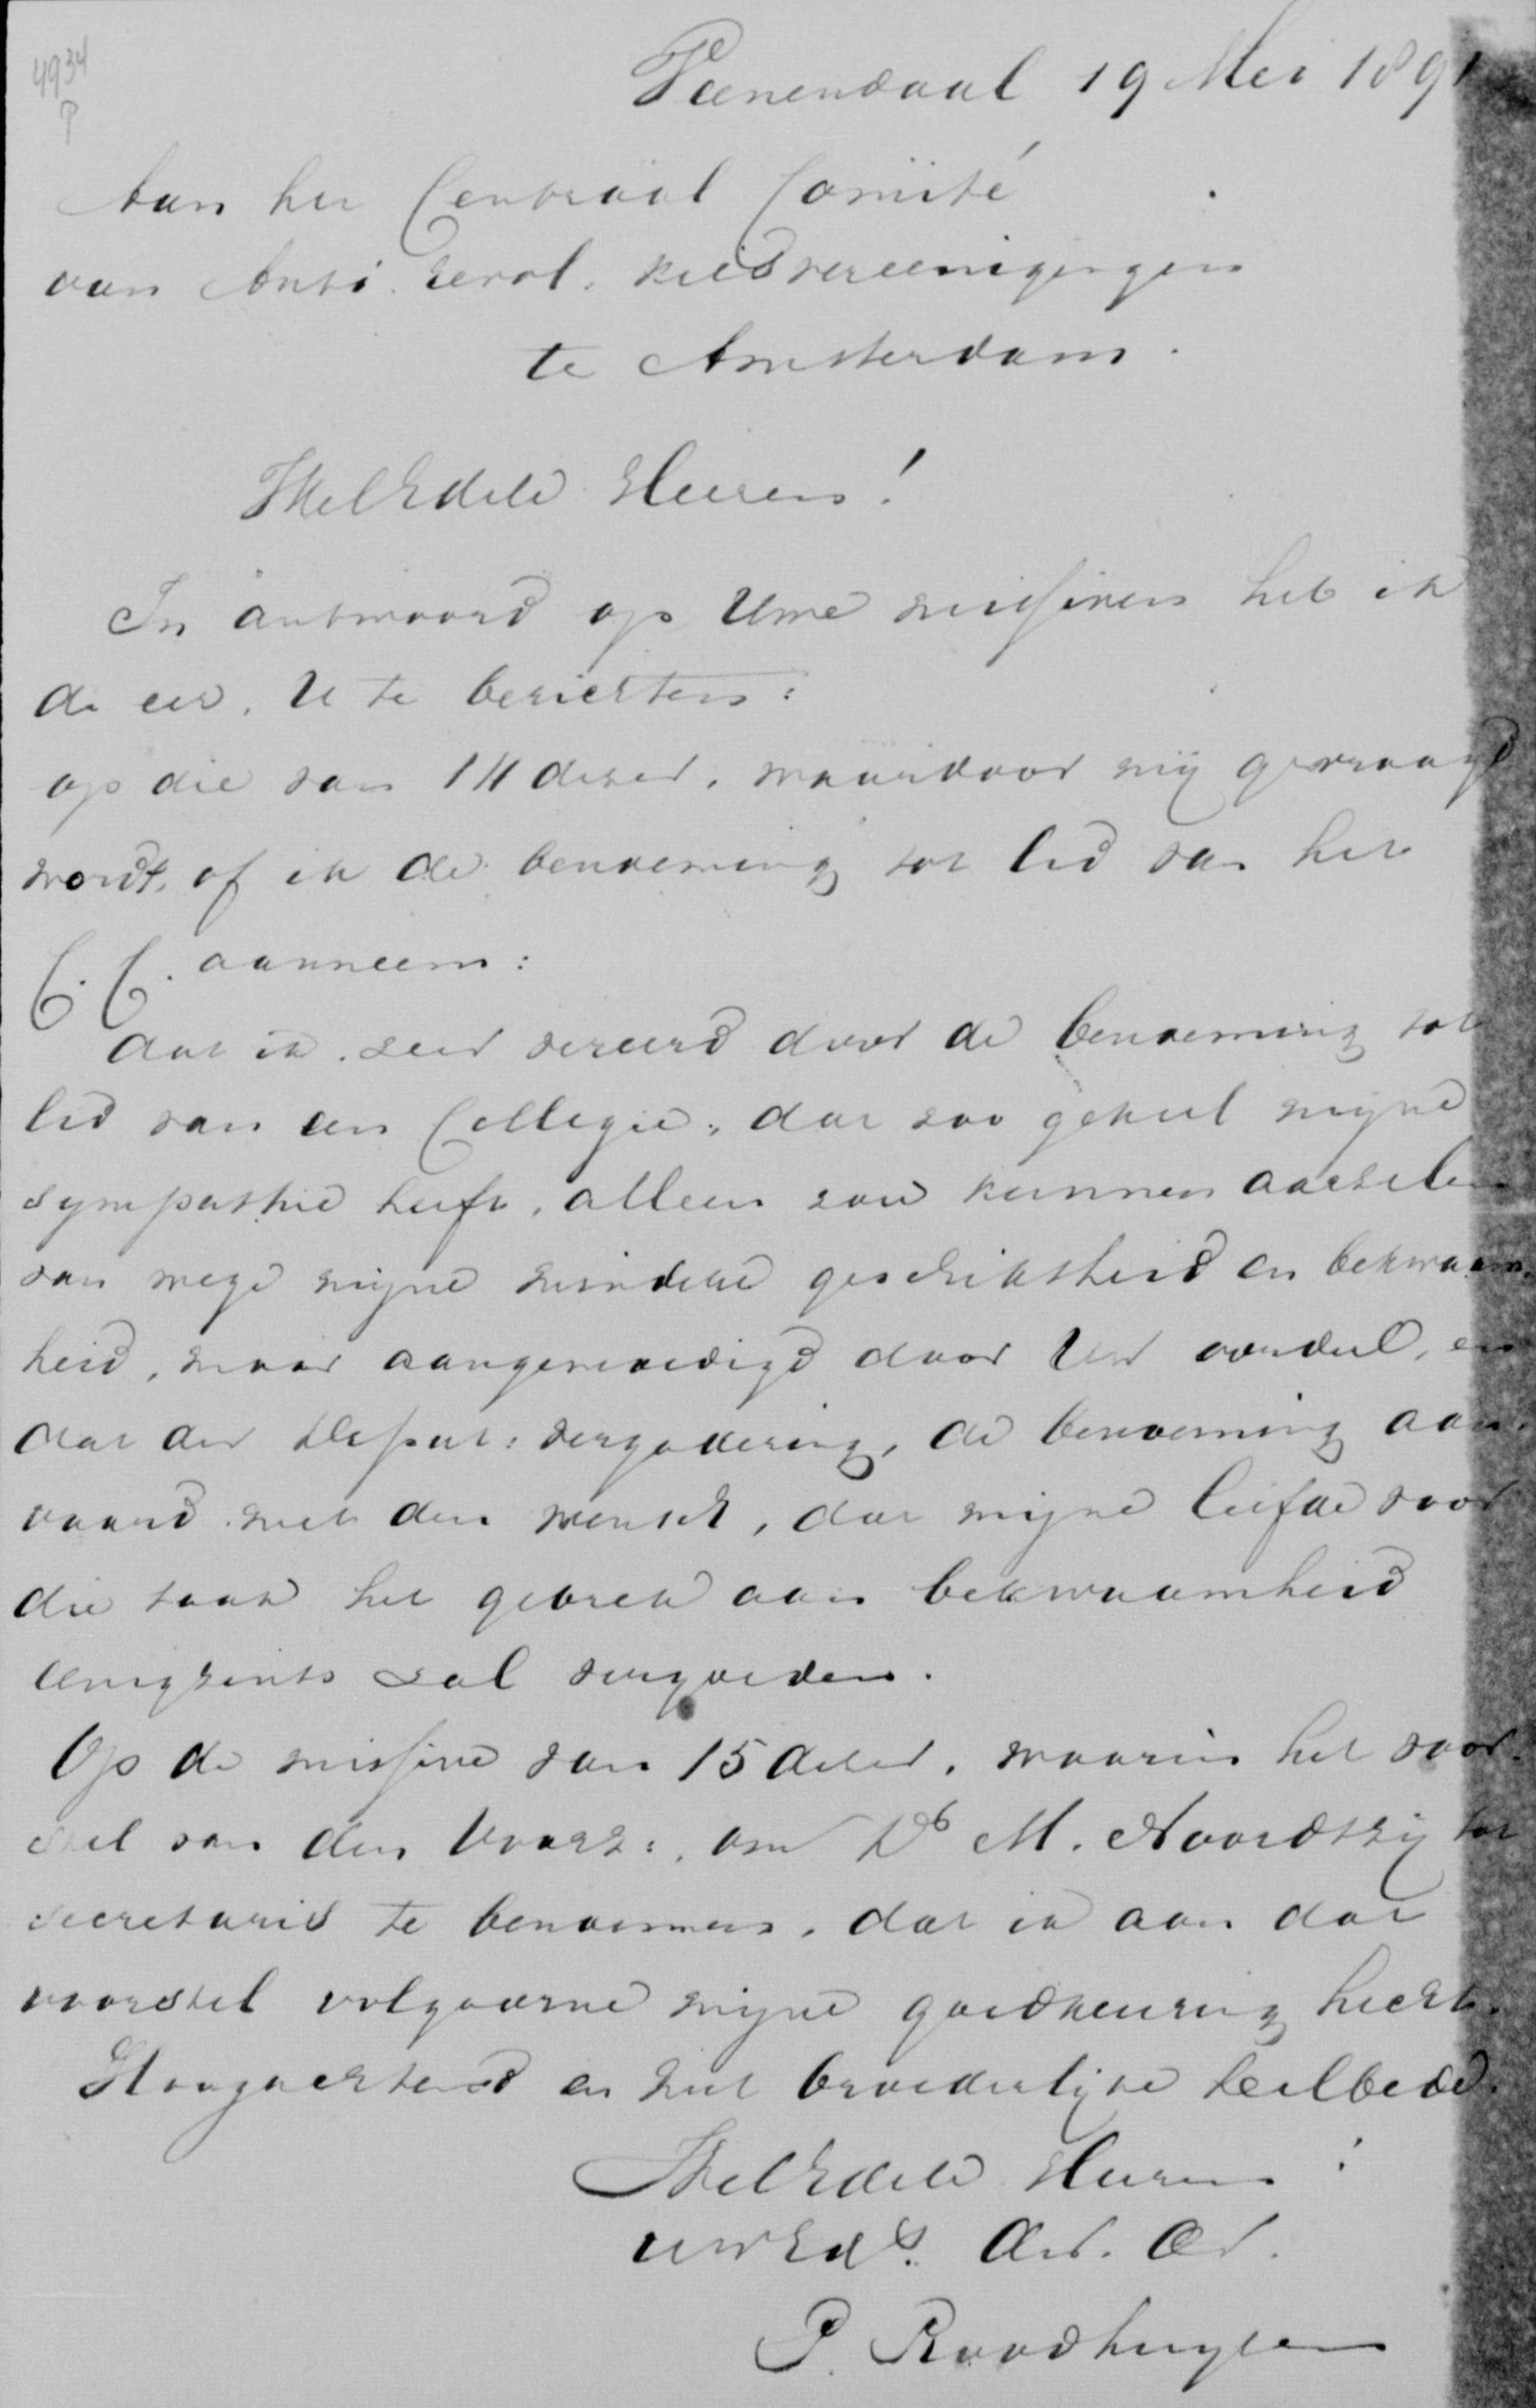 4934
P
Veenendaal 19 Mei 1891
Aan het Centraal Comité
van Anti. revol. kiesvereenigingen
te Amsterdam.
WelEdele Heeren!
In antwoord op Uwe missiven heb ik
de eer, U te berichten:
op die van 14 dezer, waardoor mij gevraagd
wordt, of ik de benoeming tot lid van het
C. C. aanneem:
dat ik zeer vereerd door de benoeming tot
lid van een Collegie, dat zoo geheel mijne
sympathie heeft, alleen zou kunnen aarzelen
van wege mijne mindere geschiktheid en bekwaam-
heid, maar aangemoedigd door Uw oordeel, en
dat der Deput: vergadering, de benoeming aan-
vaard met den wensch, dat mijne liefde voor
die taak het gebrek aan bekwaamheid
eenigzints zal vergoeden.
Op de missive van 15 dezer, waarin het voor-
stel van den Voorz:, om Ds M. Noordtzij tot
secretaris te benoemen, dat ik aan dat
voorstel volgaarne mijne goedkeuring hecht.
Hoogachtend en met broederlijke heilbede.
WelEdele Heeren!
uwEds. dw. dr.
P. Roodhuyzen